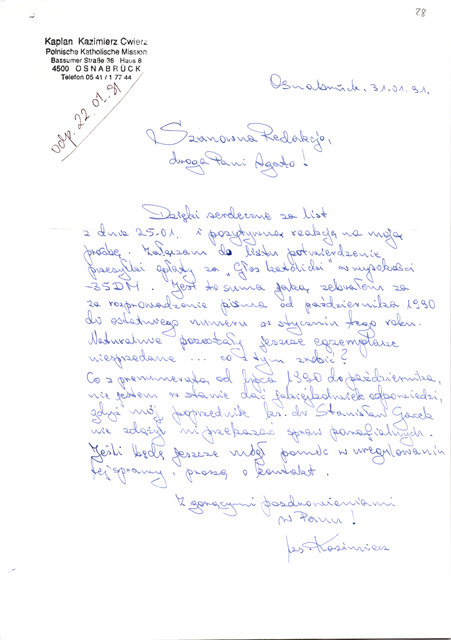 28
Kaplan Kazimierz Cwierz
Polnische Katholische Mission
Bassumer Straße 36 Haus 8
4500 OSNABRÜCK
Telefon 05 41 / 1 77 44
odp. 22.01.91
Osnabrück, 31.01.91.
Szanowna Redakcjo,
droga Pani Agato!
Dzięki serdeczne za list
z dnia 25.01. i pozytywną reakcję na moją
prośbę. Załączam do listu potwierdzenie
przesyłki opłaty za "Głos katolicki" w wysokości
-35DM. Jest to suma jaką zebrałem za
za rozprowadzenie pisma od października 1990
do ostatniego numeru w styczniu tego roku.
Naturalnie pozostały jeszcze egzemplarze
niesprzedane ... co z tym zrobić?
Co z prenumeratą od lipca 1990 do października,
nie jestem w stanie dać jakiejkolwiek odpowiedzi,
gdyż mój poprzednik ks. dr Stanisław Gacek
nie zdążył mi przekazać spraw parafialnych.
Jeśli będę jeszcze mógł pomóc w uregulowaniu
tej sprawy, proszę o kontakt.
Z gorącymi pozdrowieniami
w Panu!
ks. Kazimierz